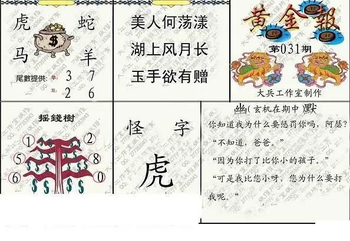 虎 蛇
马 羊
尾數提供: 3 7
2 6
美人何荡漾
湖上风月长
玉手欲有赠
黄金報
第031期
大兵工作室制作
摇錢樹
1 5 2 8
6 0
怪 字
虎
幽 玄机在期中 默
你知道我为什么要惩罚你吗，阿瑟?
"不知道，爸爸。"
"因为你打了比你小的孩子．"
"可是我比您小呀，您为什么要打
我呢．"